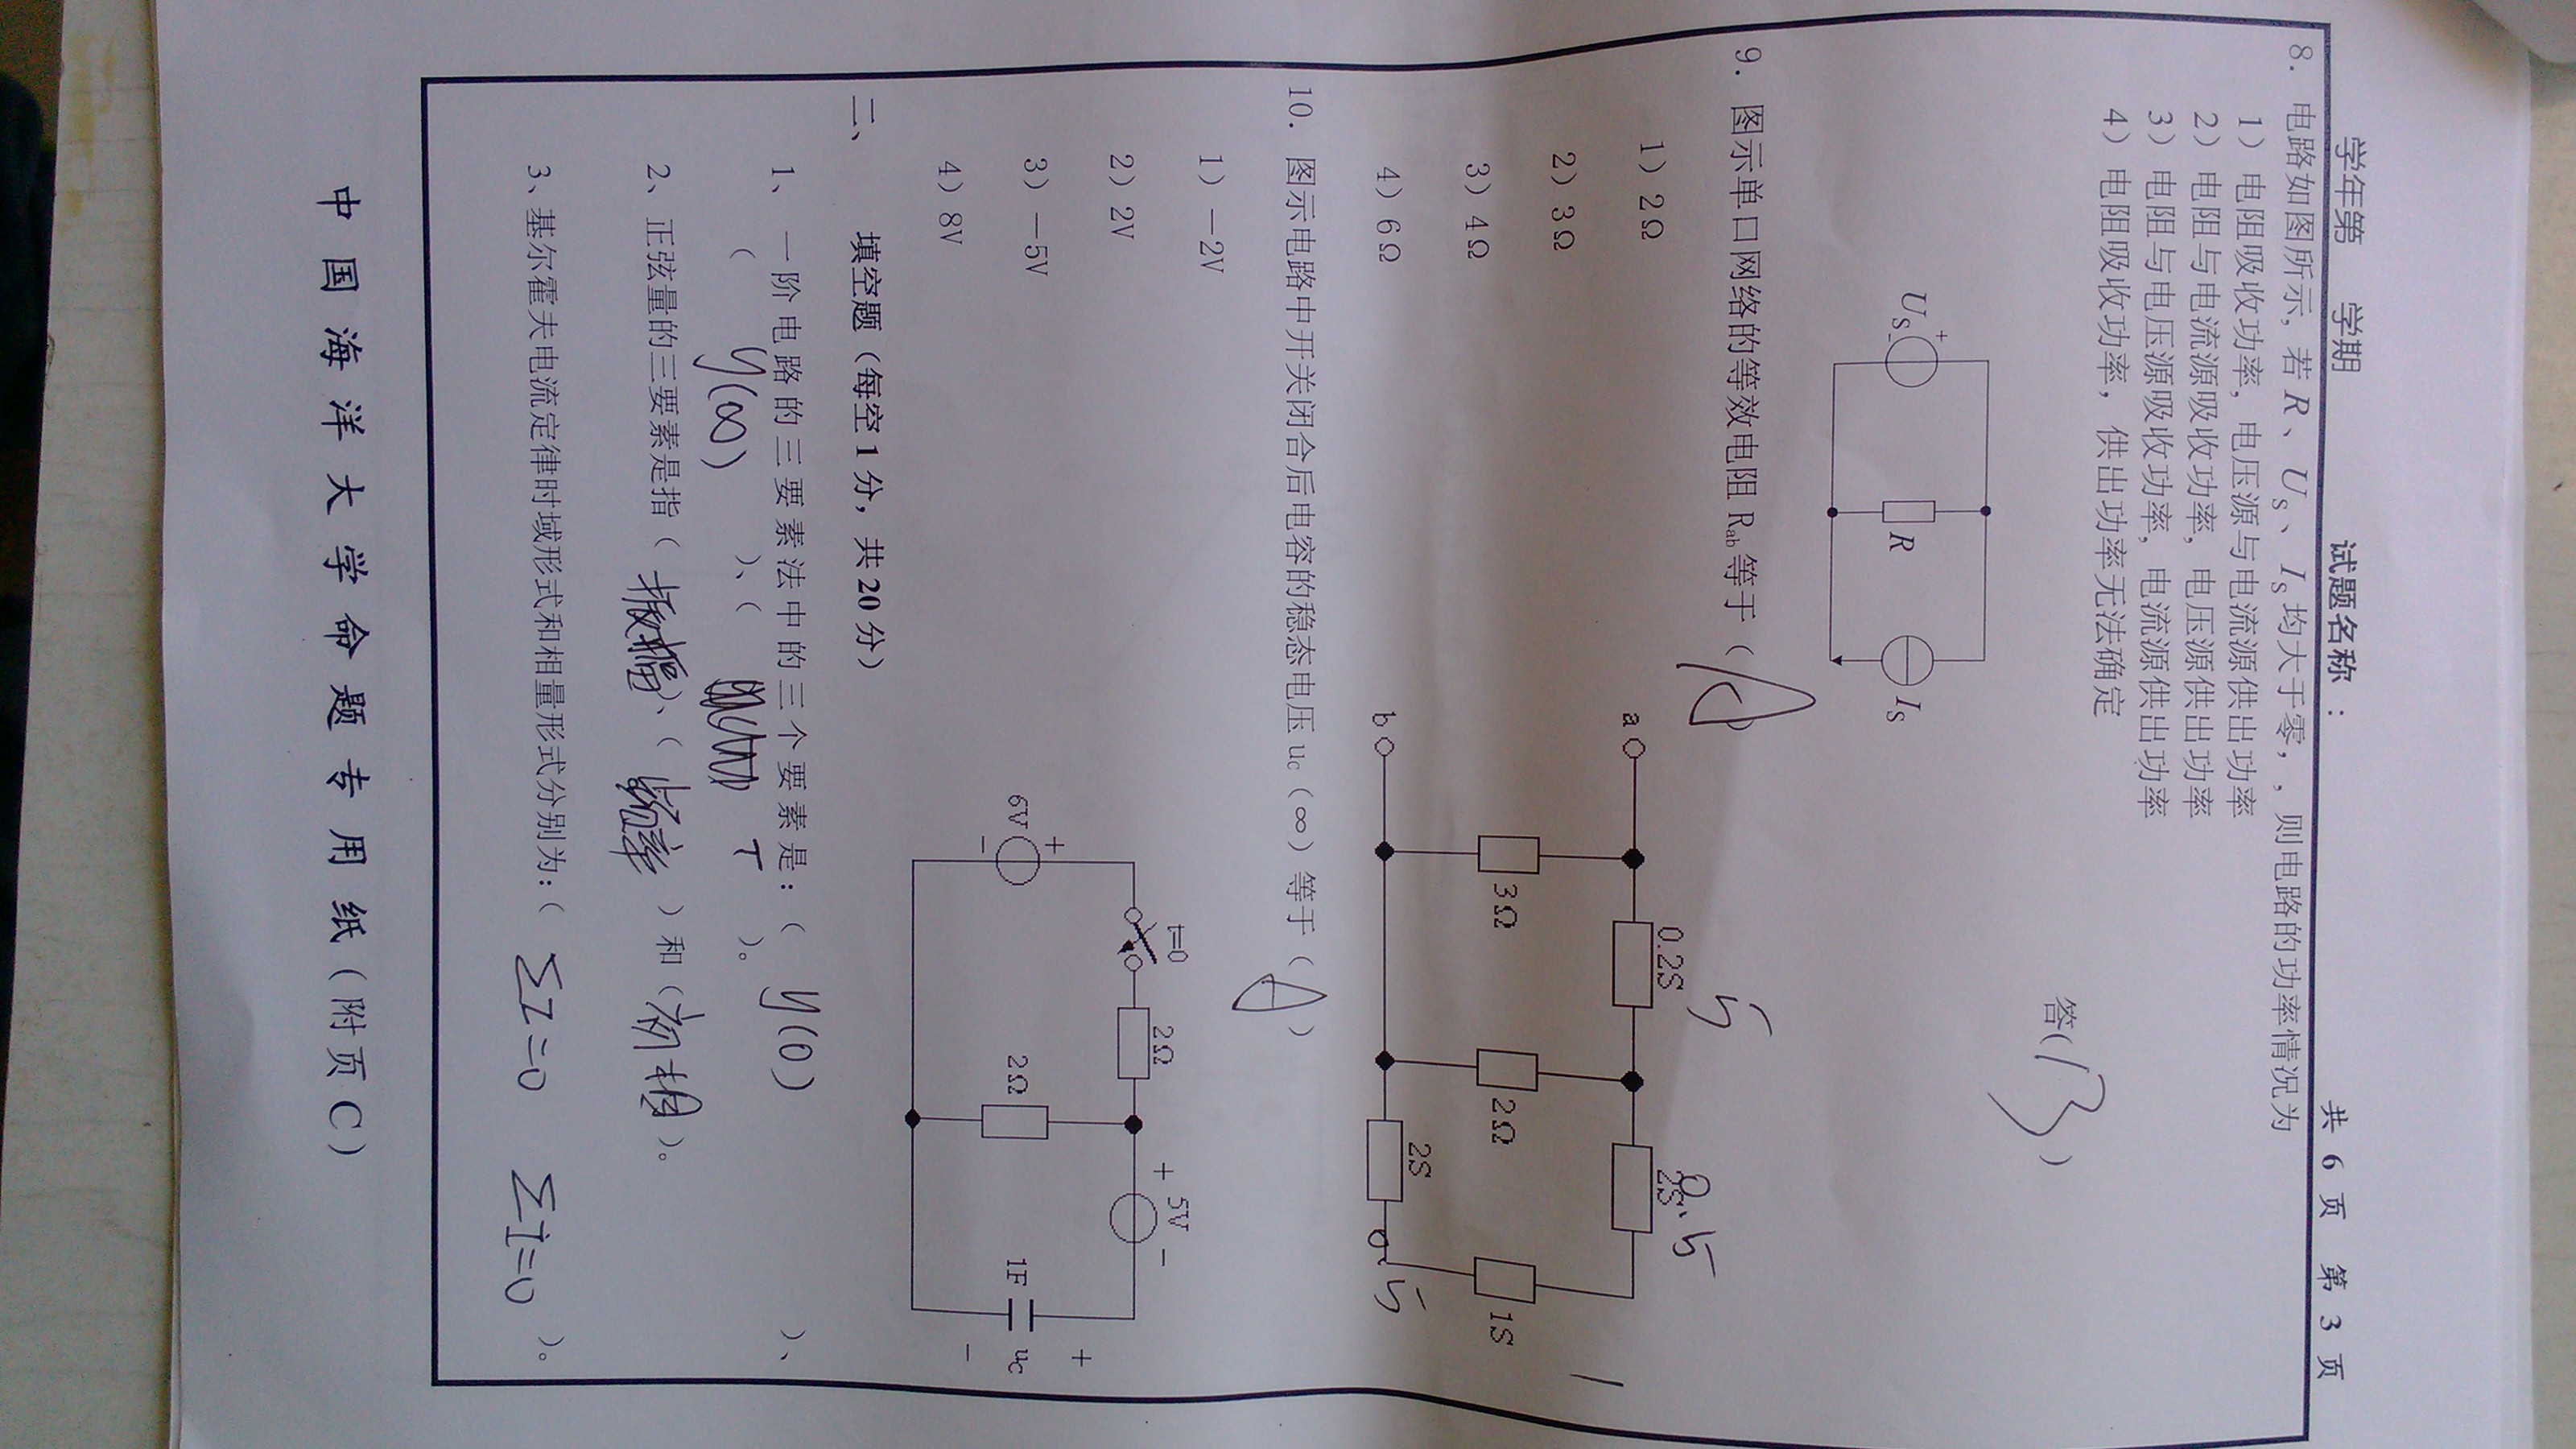 学年第 学期 试题名称 : 共 6 页 第 3 页
8. 电路如图所示, 若 R 、 US 、 IS 均大于零, , 则电路的功率情况为
1) 电阻吸收功率, 电压源与电流源供出功率
2) 电阻与电流源吸收功率, 电压源供出功率
3) 电阻与电压源吸收功率, 电流源供出功率
4) 电阻吸收功率，供出功率无法确定
答( B )
+
US
-
R
IS
9. 图示单口网络的等效电阻 Rab 等于（ A ）
1) 2Ω
2) 3Ω
3) 4Ω
4) 6Ω
5
0.5
0.2S
2S
a
1
3Ω
2Ω
1S
2S
b
0.5
10. 图示电路中开关闭合后电容的稳态电压 uC（∞）等于（ A ）
1) －2V
2) 2V
3) －5V
4) 8V
t=0
2Ω
+ 5V －
+
6V
－
2Ω
1F
+
uC
－
二、 填空题（每空 1 分，共 20 分）
1、 一阶电路的三要素法中的三个要素是:（ y(0) ）、
（ y(∞) ）、（ τ ）。
2、正弦量的三要素是指（ 振幅 ）、（ 频率 ）和（ 初相 ）。
3、基尔霍夫电流定律时域形式和相量形式分别为:（ ΣI=0 Σİ=0 ）。
中国海洋大学命题专用纸(附页C)